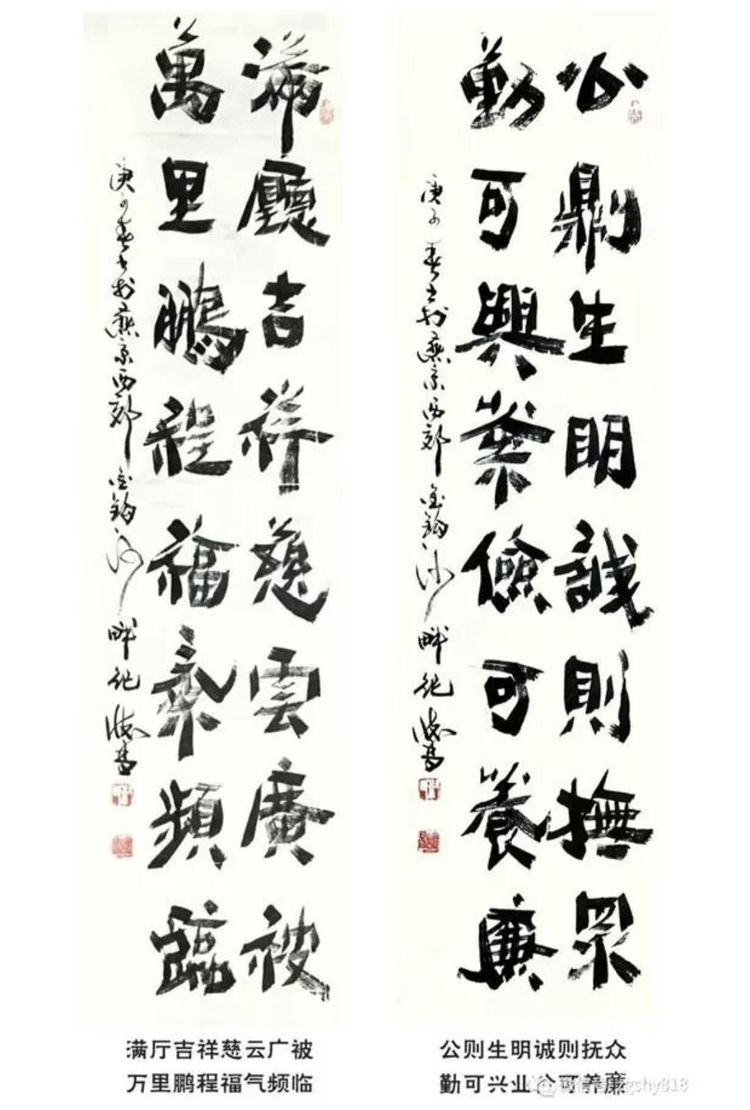 滿廳吉祥慈雲廣被
萬里鵬程福氣頻臨
庚子春書於燕京西郊金鉤河畔
公則生明誠則撫眾
勤可興業儉可養廉
庚子春書於燕京西郊金鉤河畔
满厅吉祥慈云广被
万里鹏程福气频临
公则生明诚则抚众
勤可兴业可养廉